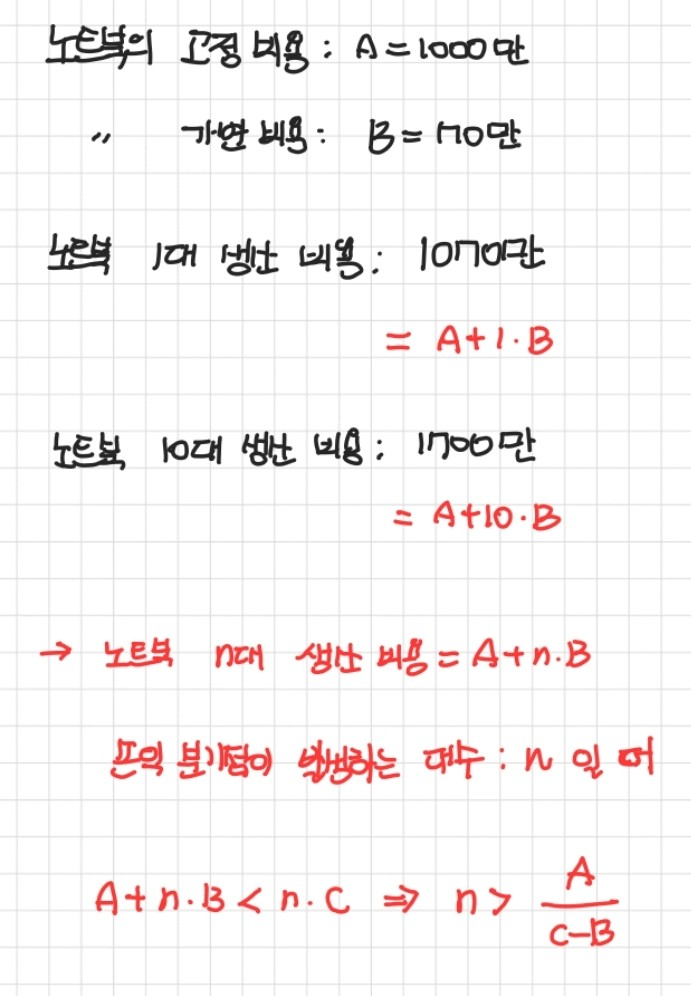 노트북의 고정 비용 : A = 1000만
〃 가변 비용 : B = 70만
노트북 1대 생산 비용 : 1070만
= A + 1 · B
노트북 10대 생산 비용 : 1700만
= A + 10 · B
→ 노트북 n대 생산 비용 = A + n · B
손익 분기점이 발생하는 대수 : n 일 때
A + n · B < n · C ⇒ n > A / C - B